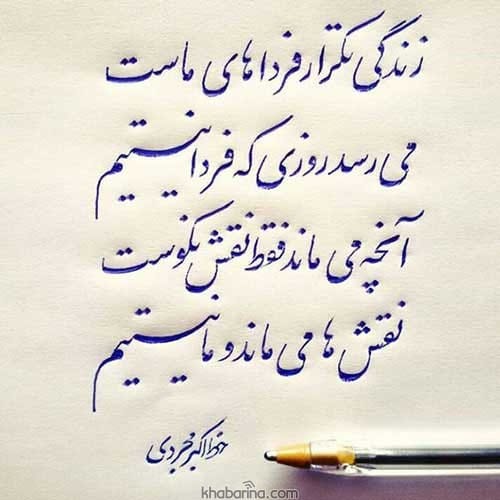 زندگی تکرار فردا های ماست
می رسد روزی که فردا نیستیم
آنچه می ماند فقط نقش نکوست
نقش ها می ماند و ما نیستیم
خط اکبر خردی
khabarina.com